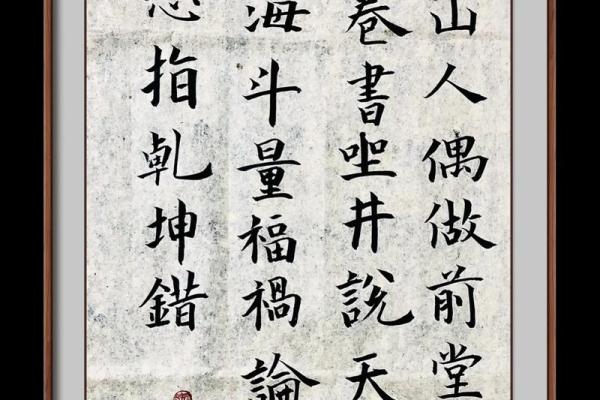 山人偶做前堂
卷書坐井說天
海斗量福禍論
指乹坤錯